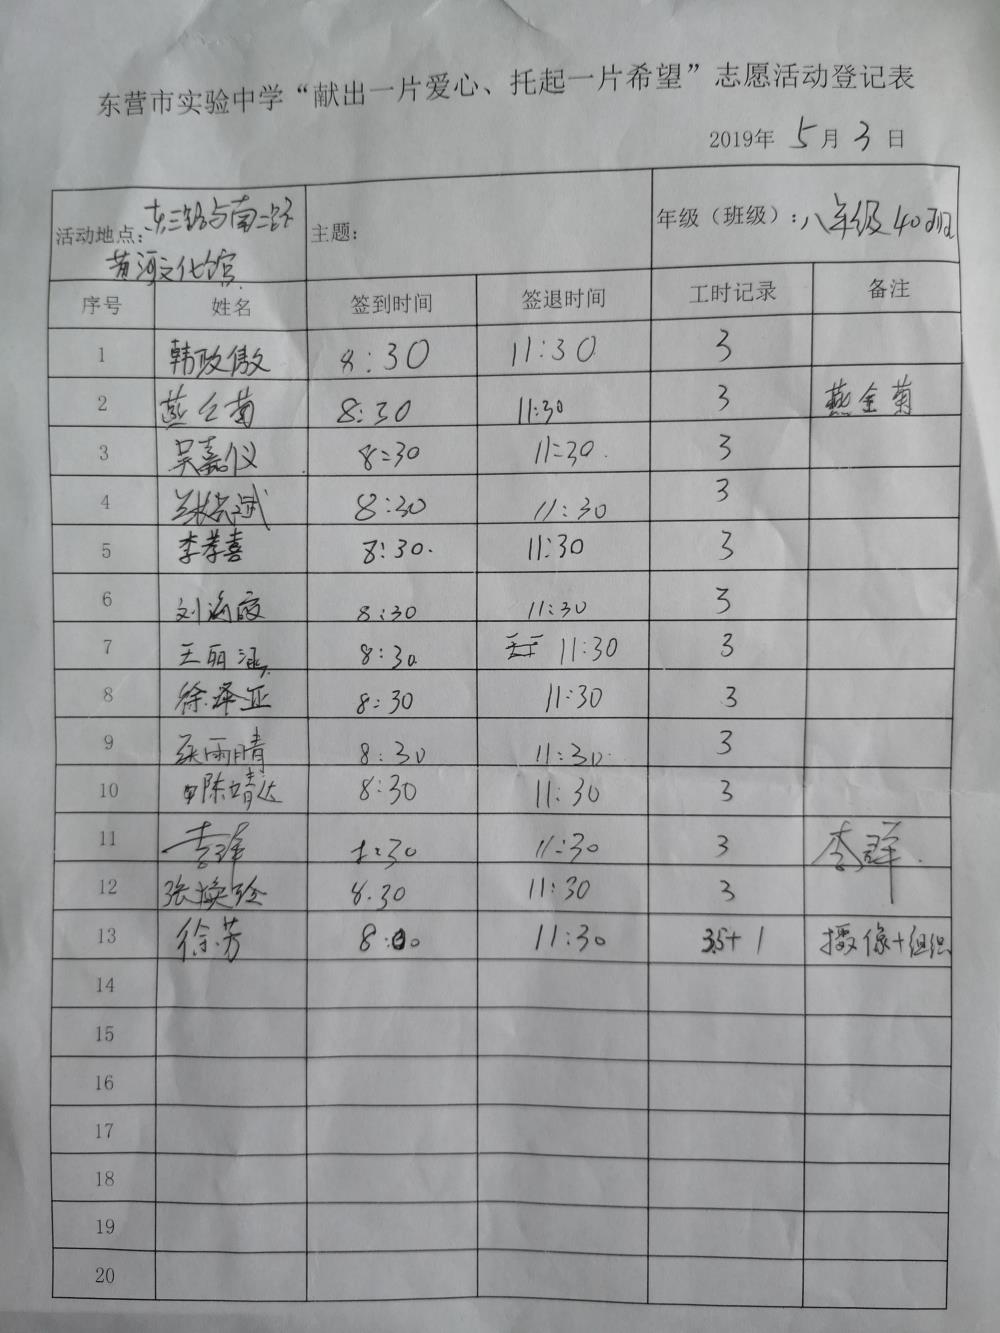 东营市实验中学“献出一片爱心、托起一片希望”志愿活动登记表
2019年 5 月 3 日
活动地点: 东三路与南二路 主题: 年级（班级）: 八年级40班
黄河文化馆
序号 姓名 签到时间 签退时间 工时记录 备注
1 韩政傲 8:30 11:30 3
2 燕金菊 8:30 11:30 3 燕金菊
3 吴嘉仪 8:30 11:30 3
4 8:30 11:30 3
5 李孝喜 8:30 11:30 3
6 刘海霞 8:30 11:30 3
7 王雨涵 8:30 11:30 3
8 徐泽亚 8:30 11:30 3
9 张雨晴 8:30 11:30 3
10 陈靖达 8:30 11:30 3
11 李群 8:30 11:30 3 李群
12 张焕玲 8.30 11:30 3
13 徐芳 8:00 11:30 3.5+1 摄像+组织
14
15
16
17
18
19
20